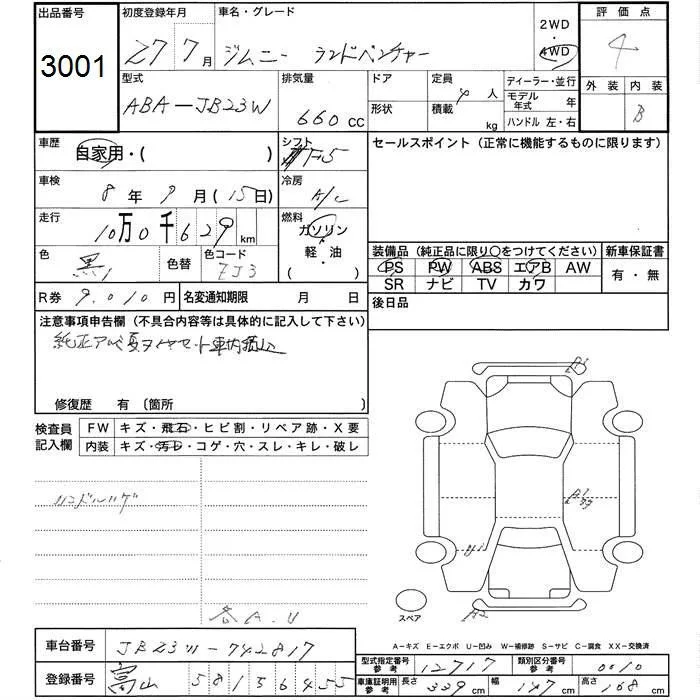 出品番号
3001
初度登録年月
27 7月
車名・グレード
ジムニー ランドベンチャー
2WD
4WD
評価点
4
型式
ABA-JB23W
排気量
660 CC
ドア
形状
定員
4人
積載
kg
ディーラー・並行
モデル年式 年
ハンドル 左・右
外装
内装
B
車歴
自家用・( )
シフト
F5
セールスポイント (正常に機能するものに限ります)
車検
8年9月(15日)
冷房
A/C
走行
10万0千629km
燃料
ガソリン
軽・油
・( )
色
黒
色替
色コード
ZJ3
装備品 (純正品に限り○をつけてください)
PS PW ABS エアB AW
SR ナビ TV カワ
新車保証書
有・無
R券 9,010円
名変通知期限 月 日
後日品
注意事項申告欄 (不具合内容等は具体的に記入して下さい)
純正アルミ夏タイヤセット車内積込
修復歴 有 〔箇所 〕
検査員記入欄
FW キズ・飛石・ヒビ割・リペア跡・X要
内装 キズ・汚レ・コゲ・穴・スレ・キレ・破レ
ハンドルハゲ
各A.U
A1
A1
U1
A2
スペア
A-キズ E-エクボ U-凹み W-補修跡 S-サビ C-腐食 XX-交換済
車台番号 JB23W-742817
登録番号 富山 581 よ 6455
型式指定番号 参考 12717
類別区分番号 参考 0010
車庫証明用 参考 長さ 339cm 幅 147cm 高さ 168cm